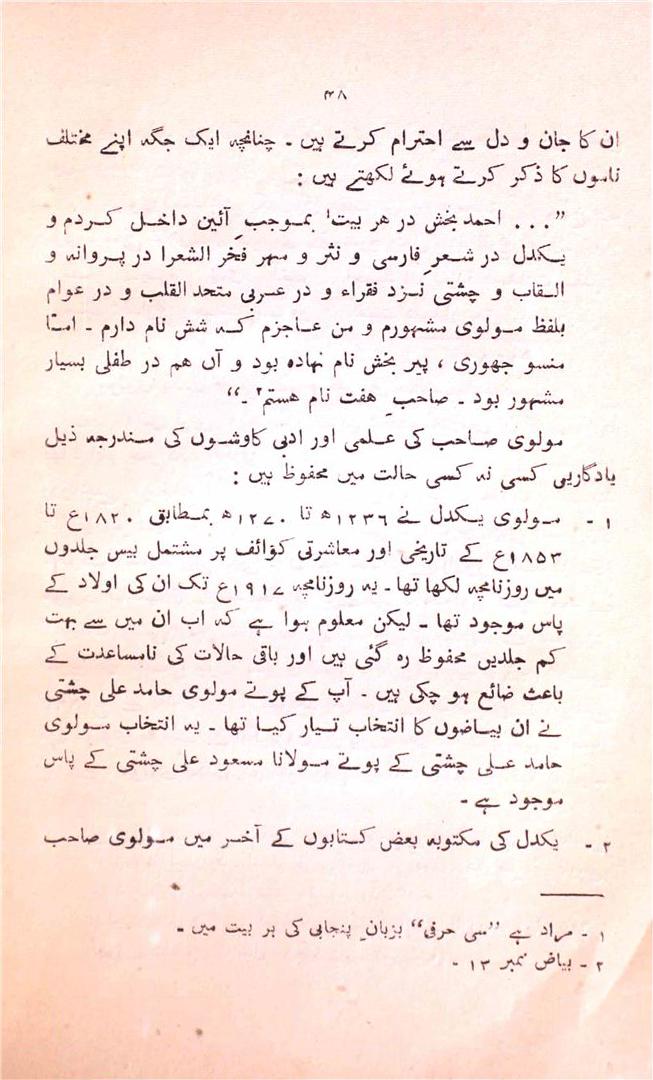 ۳۸
ان کا جان و دل سے احترام کرتے ہیں ۔ چنانچہ ایک جگہ اپنے مختلف
ناموں کا ذکر کرتے ہوئے لکھتے ہیں :
”. . . احمد بخش در ہر بیت۱ بموجبِ آئین داخل کردم و
یکدل در شعرِ فارسی و نثر و مہر فخر الشعرا در پروانہ و
القاب و چشتی نزد فقراء و در عربی متحد القلب و در عوام
بلفظ مولوی مشہورم و من عاجزم کہ شش نام دارم ۔ امّا
منسو جھوری ، پیر بخش نام نہادہ بود و آں ہم در طفلی بسیار
مشہور بود ۔ صاحبِ ہفت نام ہستم۲ ۔“
مولوی صاحب کی علمی اور ادبی کاوشوں کی مندرجہ ذیل
یادگاریں کسی نہ کسی حالت میں محفوظ ہیں :
۱ ۔ مولوی یکدل نے ۱۲۳۶ھ تا ۱۲۷۰ھ بمطابق ۱۸۲۰ع تا
۱۸۵۳ع کے تاریخی اور معاشرتی کوائف پر مشتمل بیس جلدوں
میں روزنامچہ لکھا تھا ۔ یہ روزنامچہ ۱۹۱۷ع تک ان کی اولاد کے
پاس موجود تھا ۔ لیکن معلوم ہوا ہے کہ اب ان میں سے بہت
کم جلدیں محفوظ رہ گئی ہیں اور باقی حالات کی نامساعدت کے
باعث ضائع ہو چکی ہیں ۔ آپ کے پوتے مولوی حامد علی چشتی
نے ان بیاضوں کا انتخاب تیار کیا تھا ۔ یہ انتخاب مولوی
حامد علی چشتی کے پوتے مولانا مسعود علی چشتی کے پاس
موجود ہے ۔
۲ ۔ یکدل کی مکتوبہ بعض کتابوں کے آخر میں مولوی صاحب
۱ ۔ مراد ہے ”سی حرفی“ بزبانِ پنجابی کی ہر بیت میں ۔
۲ ۔ بیاض نمبر ۱۳ ۔